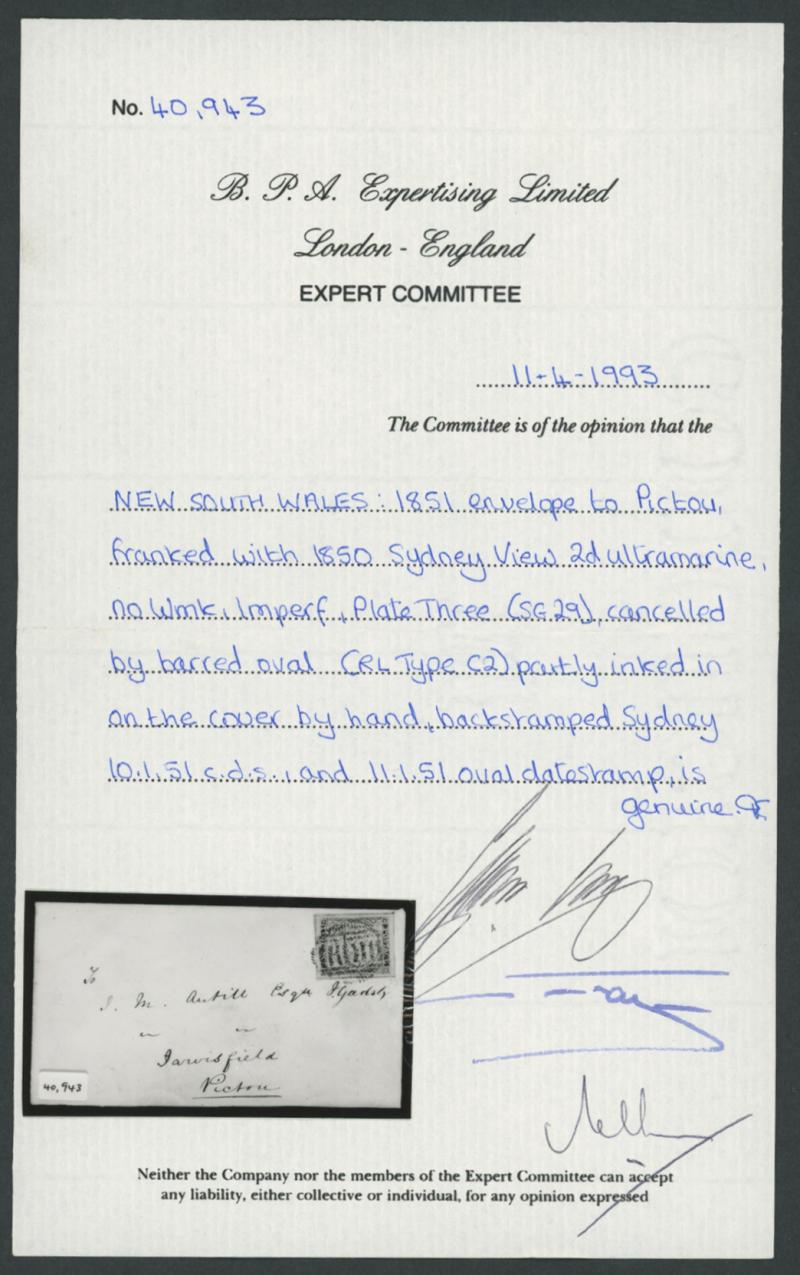 No. 40,943
B. P. A. Expertising Limited
London - England
EXPERT COMMITTEE
11-4-1993
The Committee is of the opinion that the
NEW SOUTH WALES: 1851 envelope to Picton,
franked with 1850 Sydney View 2d ultramarine,
no Wmk, Imperf, Plate Three (SG 29), cancelled
by barred oval (RL Type C2) partly inked in
on the cover by hand, backstamped Sydney
10.1.51 c.d.s., and 11.1.51 oval datestamp, is
genuine.
To
J. M. Antill Esqr
Jarvisfield
Picton
40,943
Neither the Company nor the members of the Expert Committee can accept
any liability, either collective or individual, for any opinion expressed